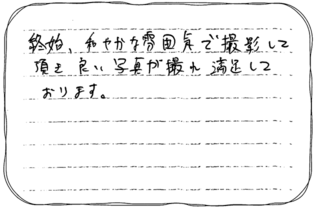 終始、和やかな雰囲気で撮影して
頂き良い写真が撮れ満足して
おります。